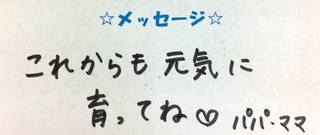 ☆メッセージ☆
これからも 元気に
育ってね♡ パパ・ママ